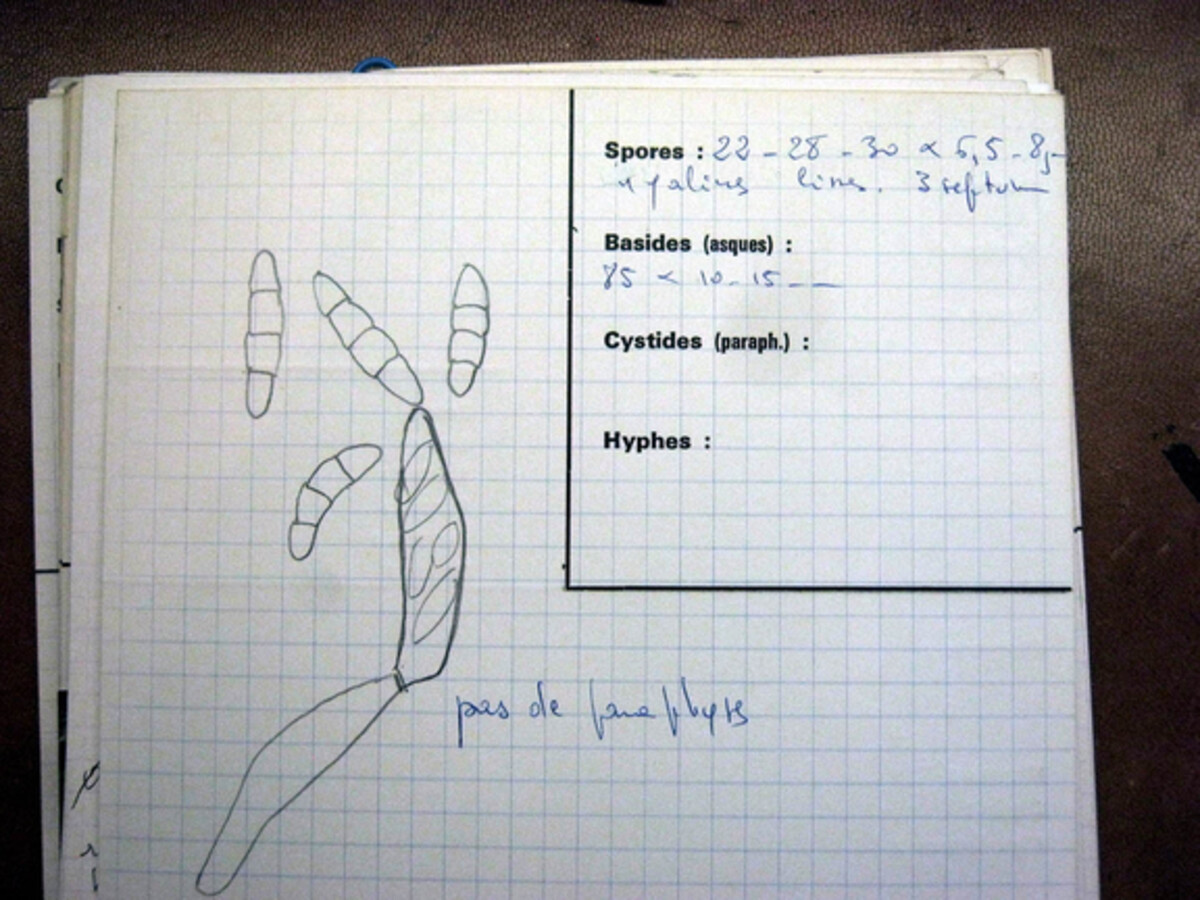 Spores : 22 - 28 - 30 × 6,5 - 8,-
hyalines lisses. 3 septum
Basides (asques) :
85 × 10-15 --
Cystides (paraph.) :
Hyphes :
pas de paraphyses